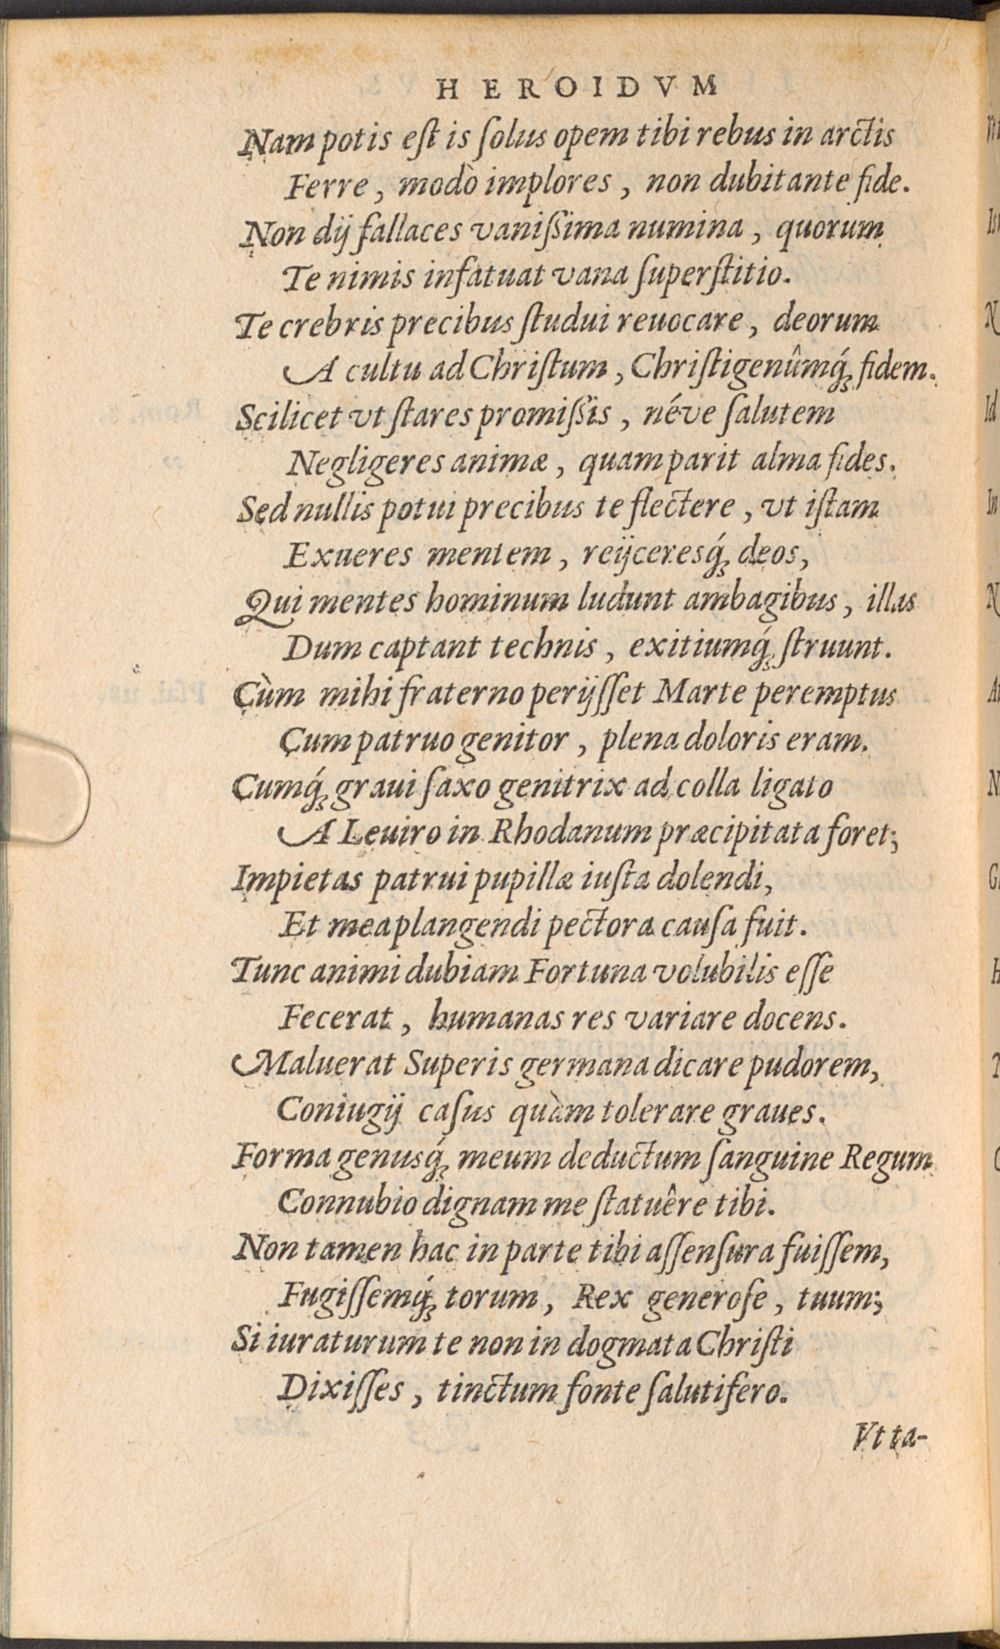 HEROIDVM
Nam potis eſt is ſolus opem tibi rebus in arctis
Ferre, modò implores, non dubitante fide.
Non dij fallaces vaniſsima numina, quorum
Te nimis infatuat vana ſuperſtitio.
Te crebris precibus ſtudui reuocare, deorum
A cultu ad Chriſtum, Chriſtigenûmq́; fidem.
Scilicet vt ſtares promiſsis, néve ſalutem
Negligeres animæ, quam parit alma fides.
Sed nullis potui precibus te flectere, vt iſtam
Exueres mentem, reijceresq́; deos,
Qui mentes hominum ludunt ambagibus, illas
Dum captant technis, exitiumq́; ſtruunt.
Cùm mihi fraterno perijſſet Marte peremptus
Cum patruo genitor, plena doloris eram.
Cumq́; graui ſaxo genitrix ad colla ligato
A Leuiro in Rhodanum præcipitata foret;
Impietas patrui pupillæ iuſta dolendi,
Et mea plangendi pectora cauſa fuit.
Tunc animi dubiam Fortuna volubilis eſſe
Fecerat, humanas res variare docens.
Maluerat Superis germana dicare pudorem,
Coniugij caſus quàm tolerare graues.
Forma genusq́; meum deductum ſanguine Regum
Connubio dignam me ſtatuêre tibi.
Non tamen hac in parte tibi aſſenſura fuiſſem,
Fugiſſemq́; torum, Rex generoſe, tuum;
Si iuraturum te non in dogmata Chriſti
Dixiſſes, tinctum fonte ſalutifero.
Vt ta-